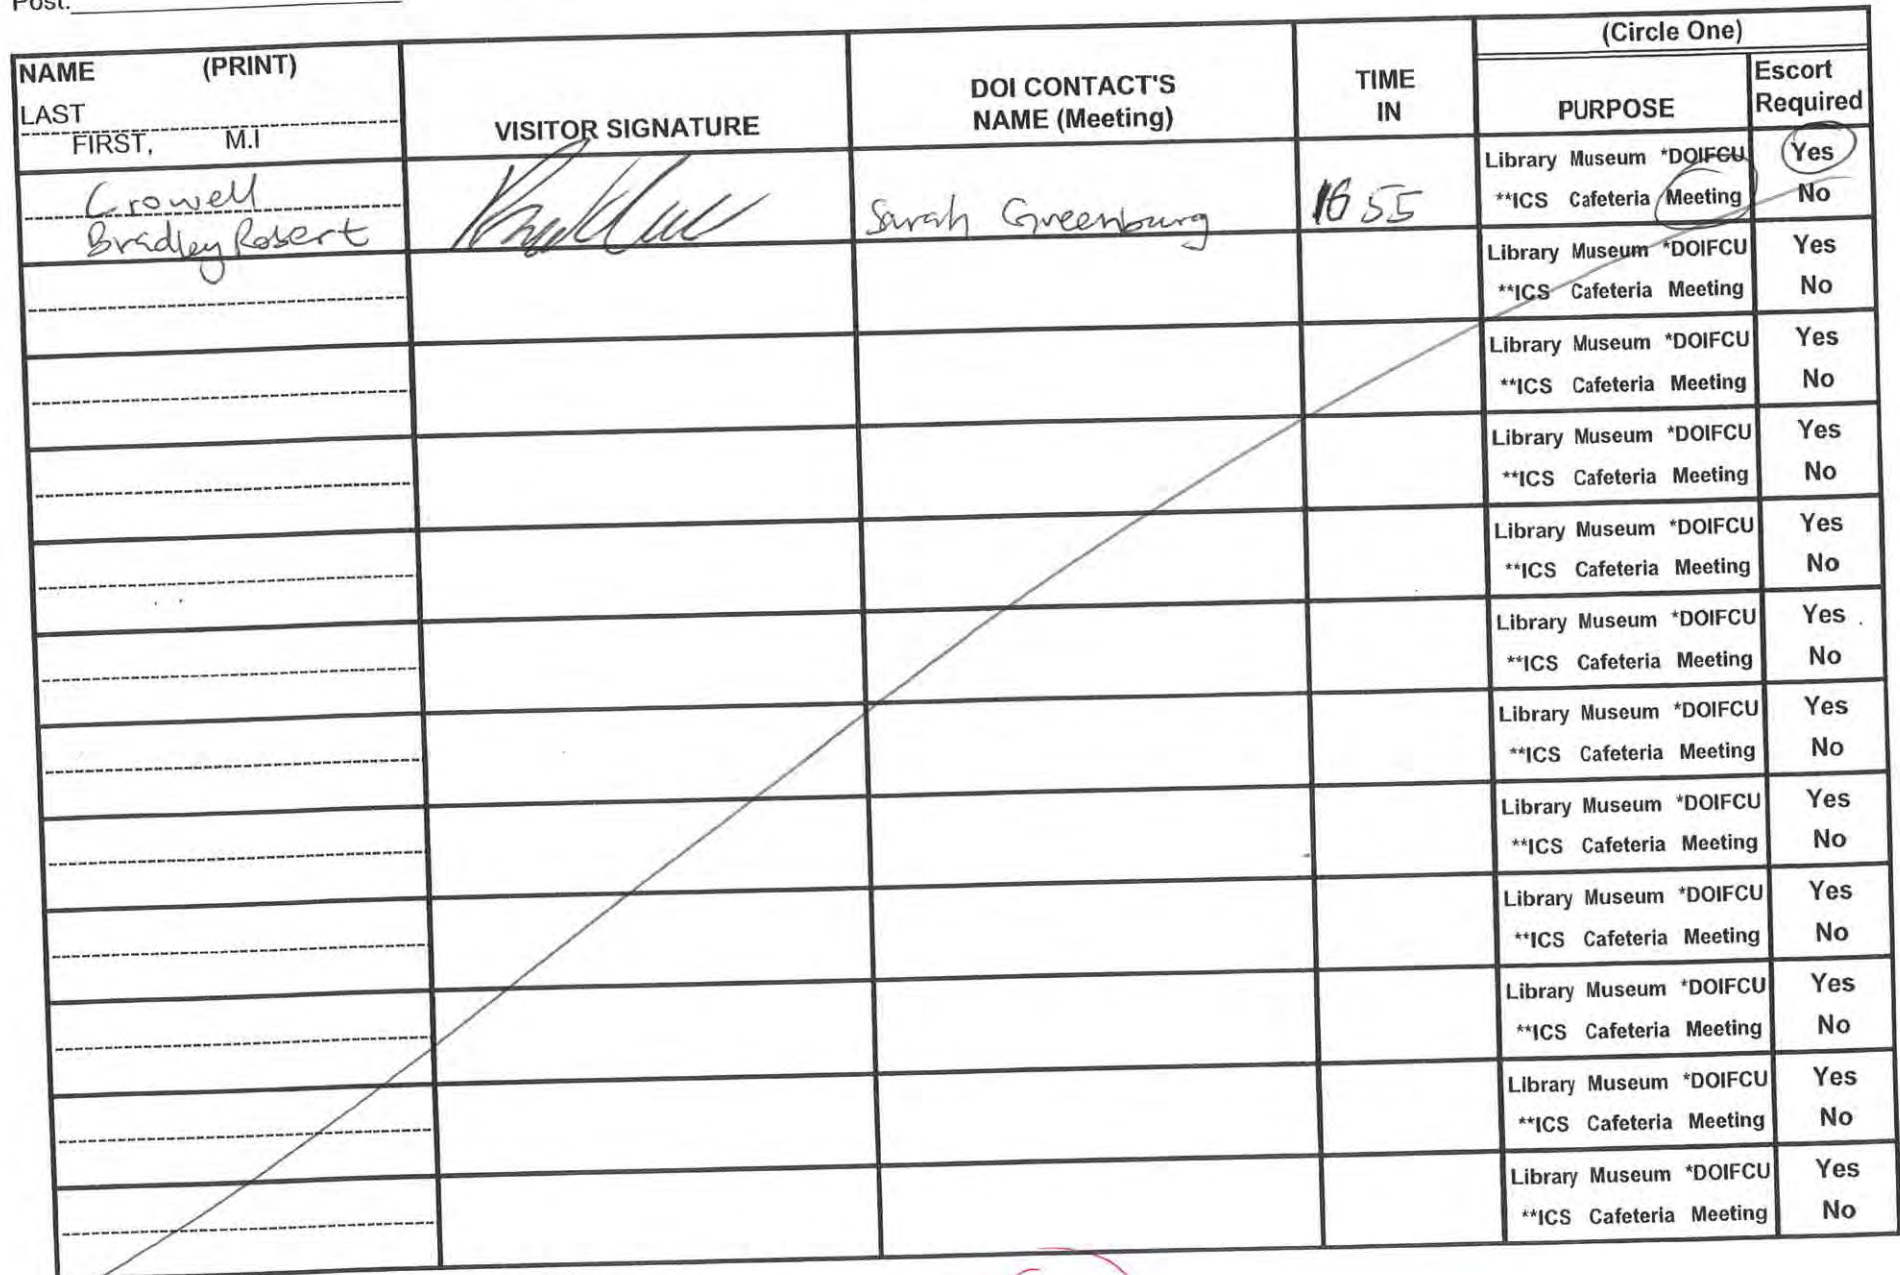 Post:
(Circle One)
NAME (PRINT)
LAST
FIRST, M.I
VISITOR SIGNATURE
DOI CONTACT'S
NAME (Meeting)
TIME
IN
PURPOSE
Escort
Required
Crowell
Bradley Robert
Sarah Greenburg
1655
Library Museum *DOIFCU Yes
**ICS Cafeteria Meeting No
Library Museum *DOIFCU Yes
**ICS Cafeteria Meeting No
Library Museum *DOIFCU Yes
**ICS Cafeteria Meeting No
Library Museum *DOIFCU Yes
**ICS Cafeteria Meeting No
Library Museum *DOIFCU Yes
**ICS Cafeteria Meeting No
Library Museum *DOIFCU Yes
**ICS Cafeteria Meeting No
Library Museum *DOIFCU Yes
**ICS Cafeteria Meeting No
Library Museum *DOIFCU Yes
**ICS Cafeteria Meeting No
Library Museum *DOIFCU Yes
**ICS Cafeteria Meeting No
Library Museum *DOIFCU Yes
**ICS Cafeteria Meeting No
Library Museum *DOIFCU Yes
**ICS Cafeteria Meeting No
Library Museum *DOIFCU Yes
**ICS Cafeteria Meeting No